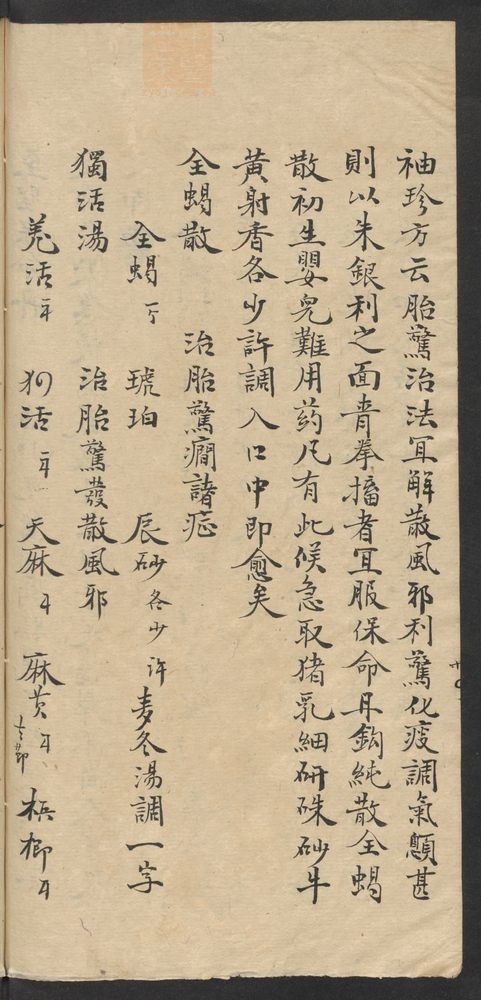 袖珍方云胎驚治法宜解散風邪利驚化痰調氣顖甚
則以朱銀利之面青拳搐者宜服保命丹鈎純散全蝎
散初生嬰兒難用药凡有此候急取猪乳細研硃砂牛
黃射香各少許調入口中即愈矣
全蝎散 治胎驚癎諸症
全蝎 琥珀 辰砂各少許 麦冬湯調一字
獨活湯 治胎驚發散風邪
羗活 犲活 天麻 麻黄 去節 梹榔